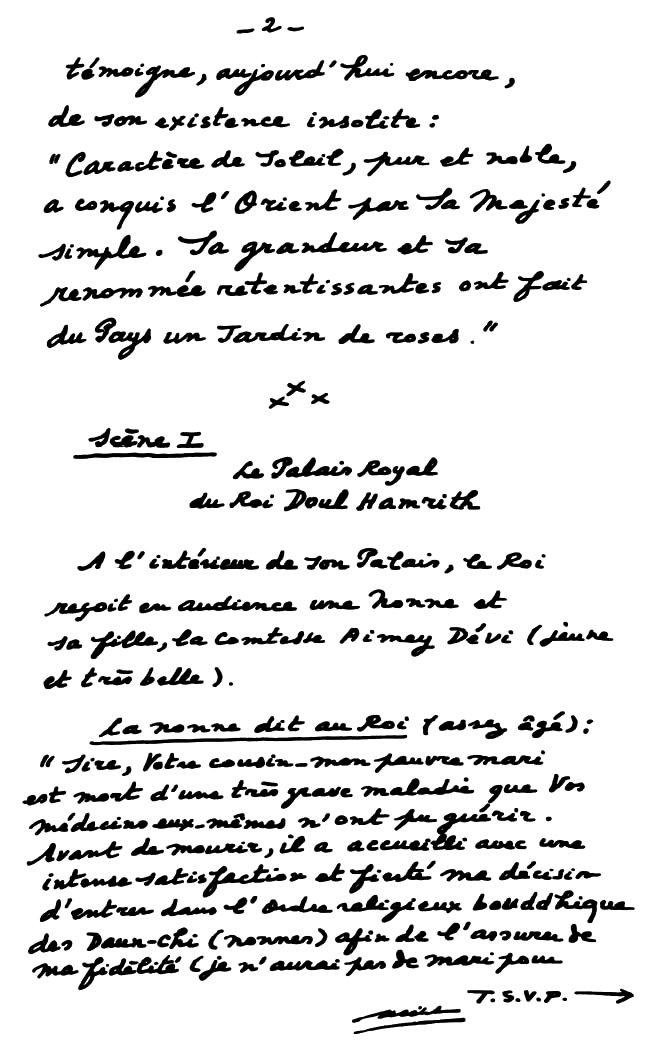 - 2 -
témoigne, aujourd'hui encore,
de son existence insolite :
"Caractère de Soleil, pur et noble,
a conquis l'Orient par Sa Majesté
simple. Sa grandeur et sa
renommée retentissantes ont fait
du Pays un Jardin de roses."
x x x
Scène I
Le Palais Royal
du Roi Doul Hamrith
A l'intérieur de son Palais, le Roi
reçoit en audience une Nonne et
sa fille, la comtesse Aimey Dévi (jeune
et très belle).
La nonne dit au Roi (assez âgé) :
"Sire, Votre cousin-mon pauvre mari
est mort d'une très grave maladie que Vos
médecins eux-mêmes n'ont pu guérir.
Avant de mourir, il a accueilli avec une
intense satisfaction et fierté ma décision
d'entrer dans l'Ordre religieux bouddhique
des Daun-Chi (nonnes) afin de l'assurer de
ma fidélité (je n'aurai pas de mari pour
T.S.V.P. →